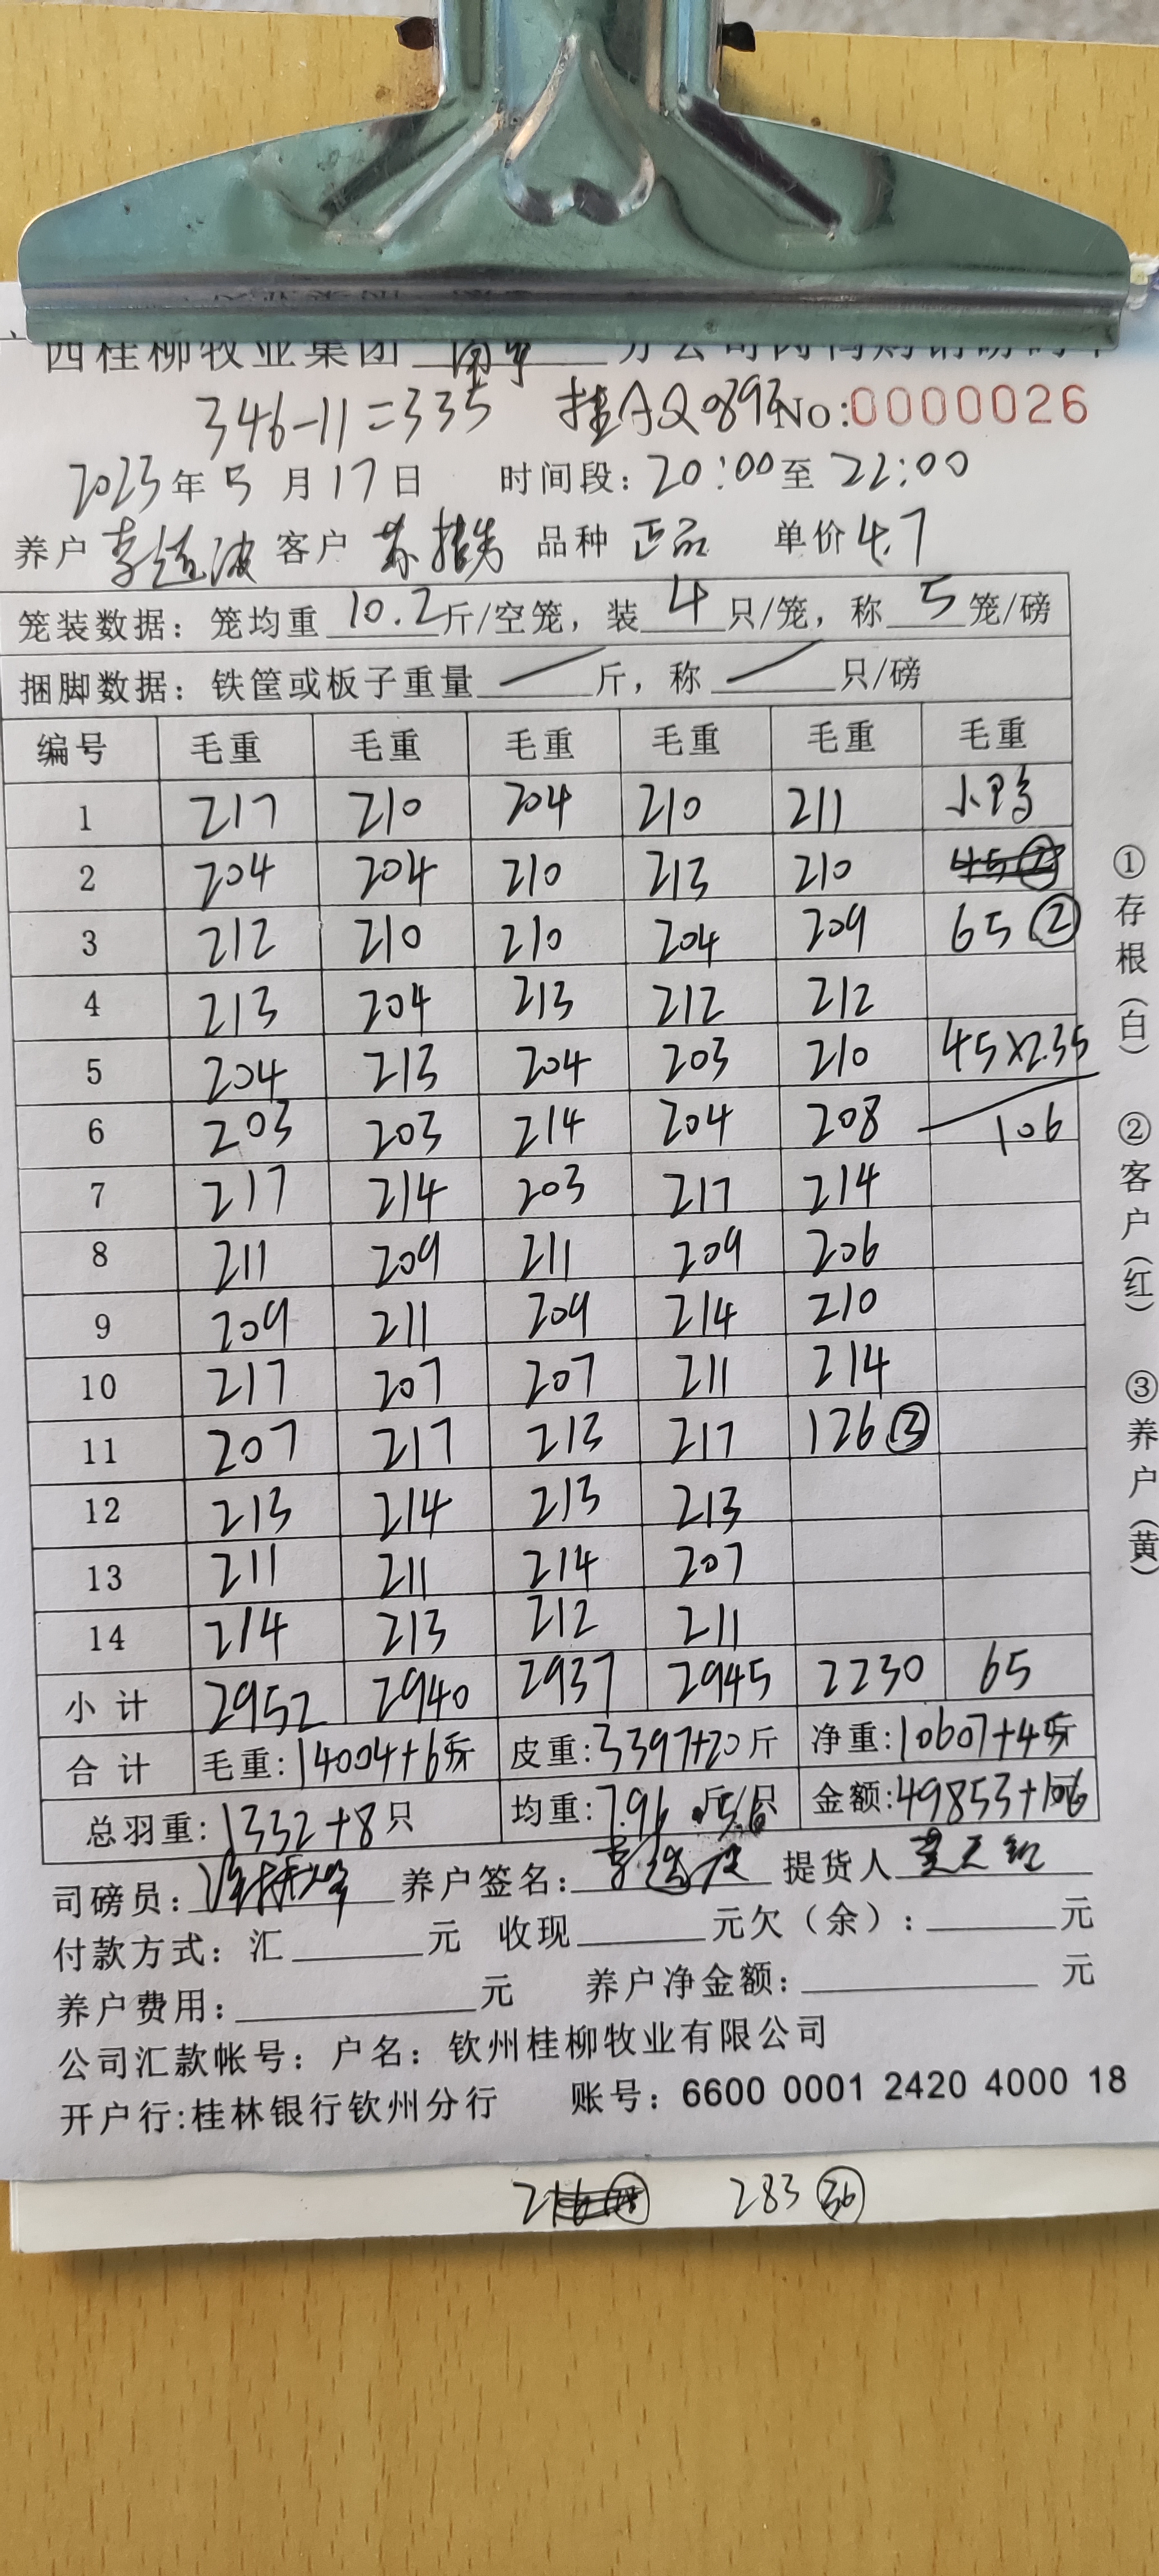 西桂柳牧业集团 南宁 分公司肉鸭购销磅码单
346-11=335 桂AQ0893 No:0000026
2023年5月17日 时间段:20:00至22:00
养户 李 客户 苏 品种 正品 单价4.7
笼装数据:笼均重10.2斤/空笼,装4只/笼,称5笼/磅
捆脚数据:铁筐或板子重量 / 斤,称 / 只/磅
编号 毛重 毛重 毛重 毛重 毛重 毛重
1 217 210 204 210 211 小鸭
2 204 204 210 213 210
3 212 210 210 204 209 65②
4 213 204 213 212 212
5 204 213 204 203 210 45×2.35
6 203 203 214 204 208 106
7 217 214 203 217 214
8 211 209 211 209 206
9 209 211 209 214 210
10 217 207 207 211 214
11 207 217 213 217 126③
12 213 214 213 213
13 211 211 214 207
14 214 213 212 211
小计 2952 2940 2937 2945 2230 65
合计 毛重:14004+65斤 皮重:3397+20斤 净重:10607+45斤
总羽重:1332+8只 均重:7.96 5.6 斤/只 金额:49853+106元
司磅员: 养户签名:李 提货人
付款方式:汇 元 收现 元欠(余): 元
养户费用: 元 养户净金额: 元
公司汇款帐号:户名:钦州桂柳牧业有限公司
开户行:桂林银行钦州分行 账号:6600 0001 2420 4000 18
①存根(白) ②客户(红) ③养户(黄)
283 36